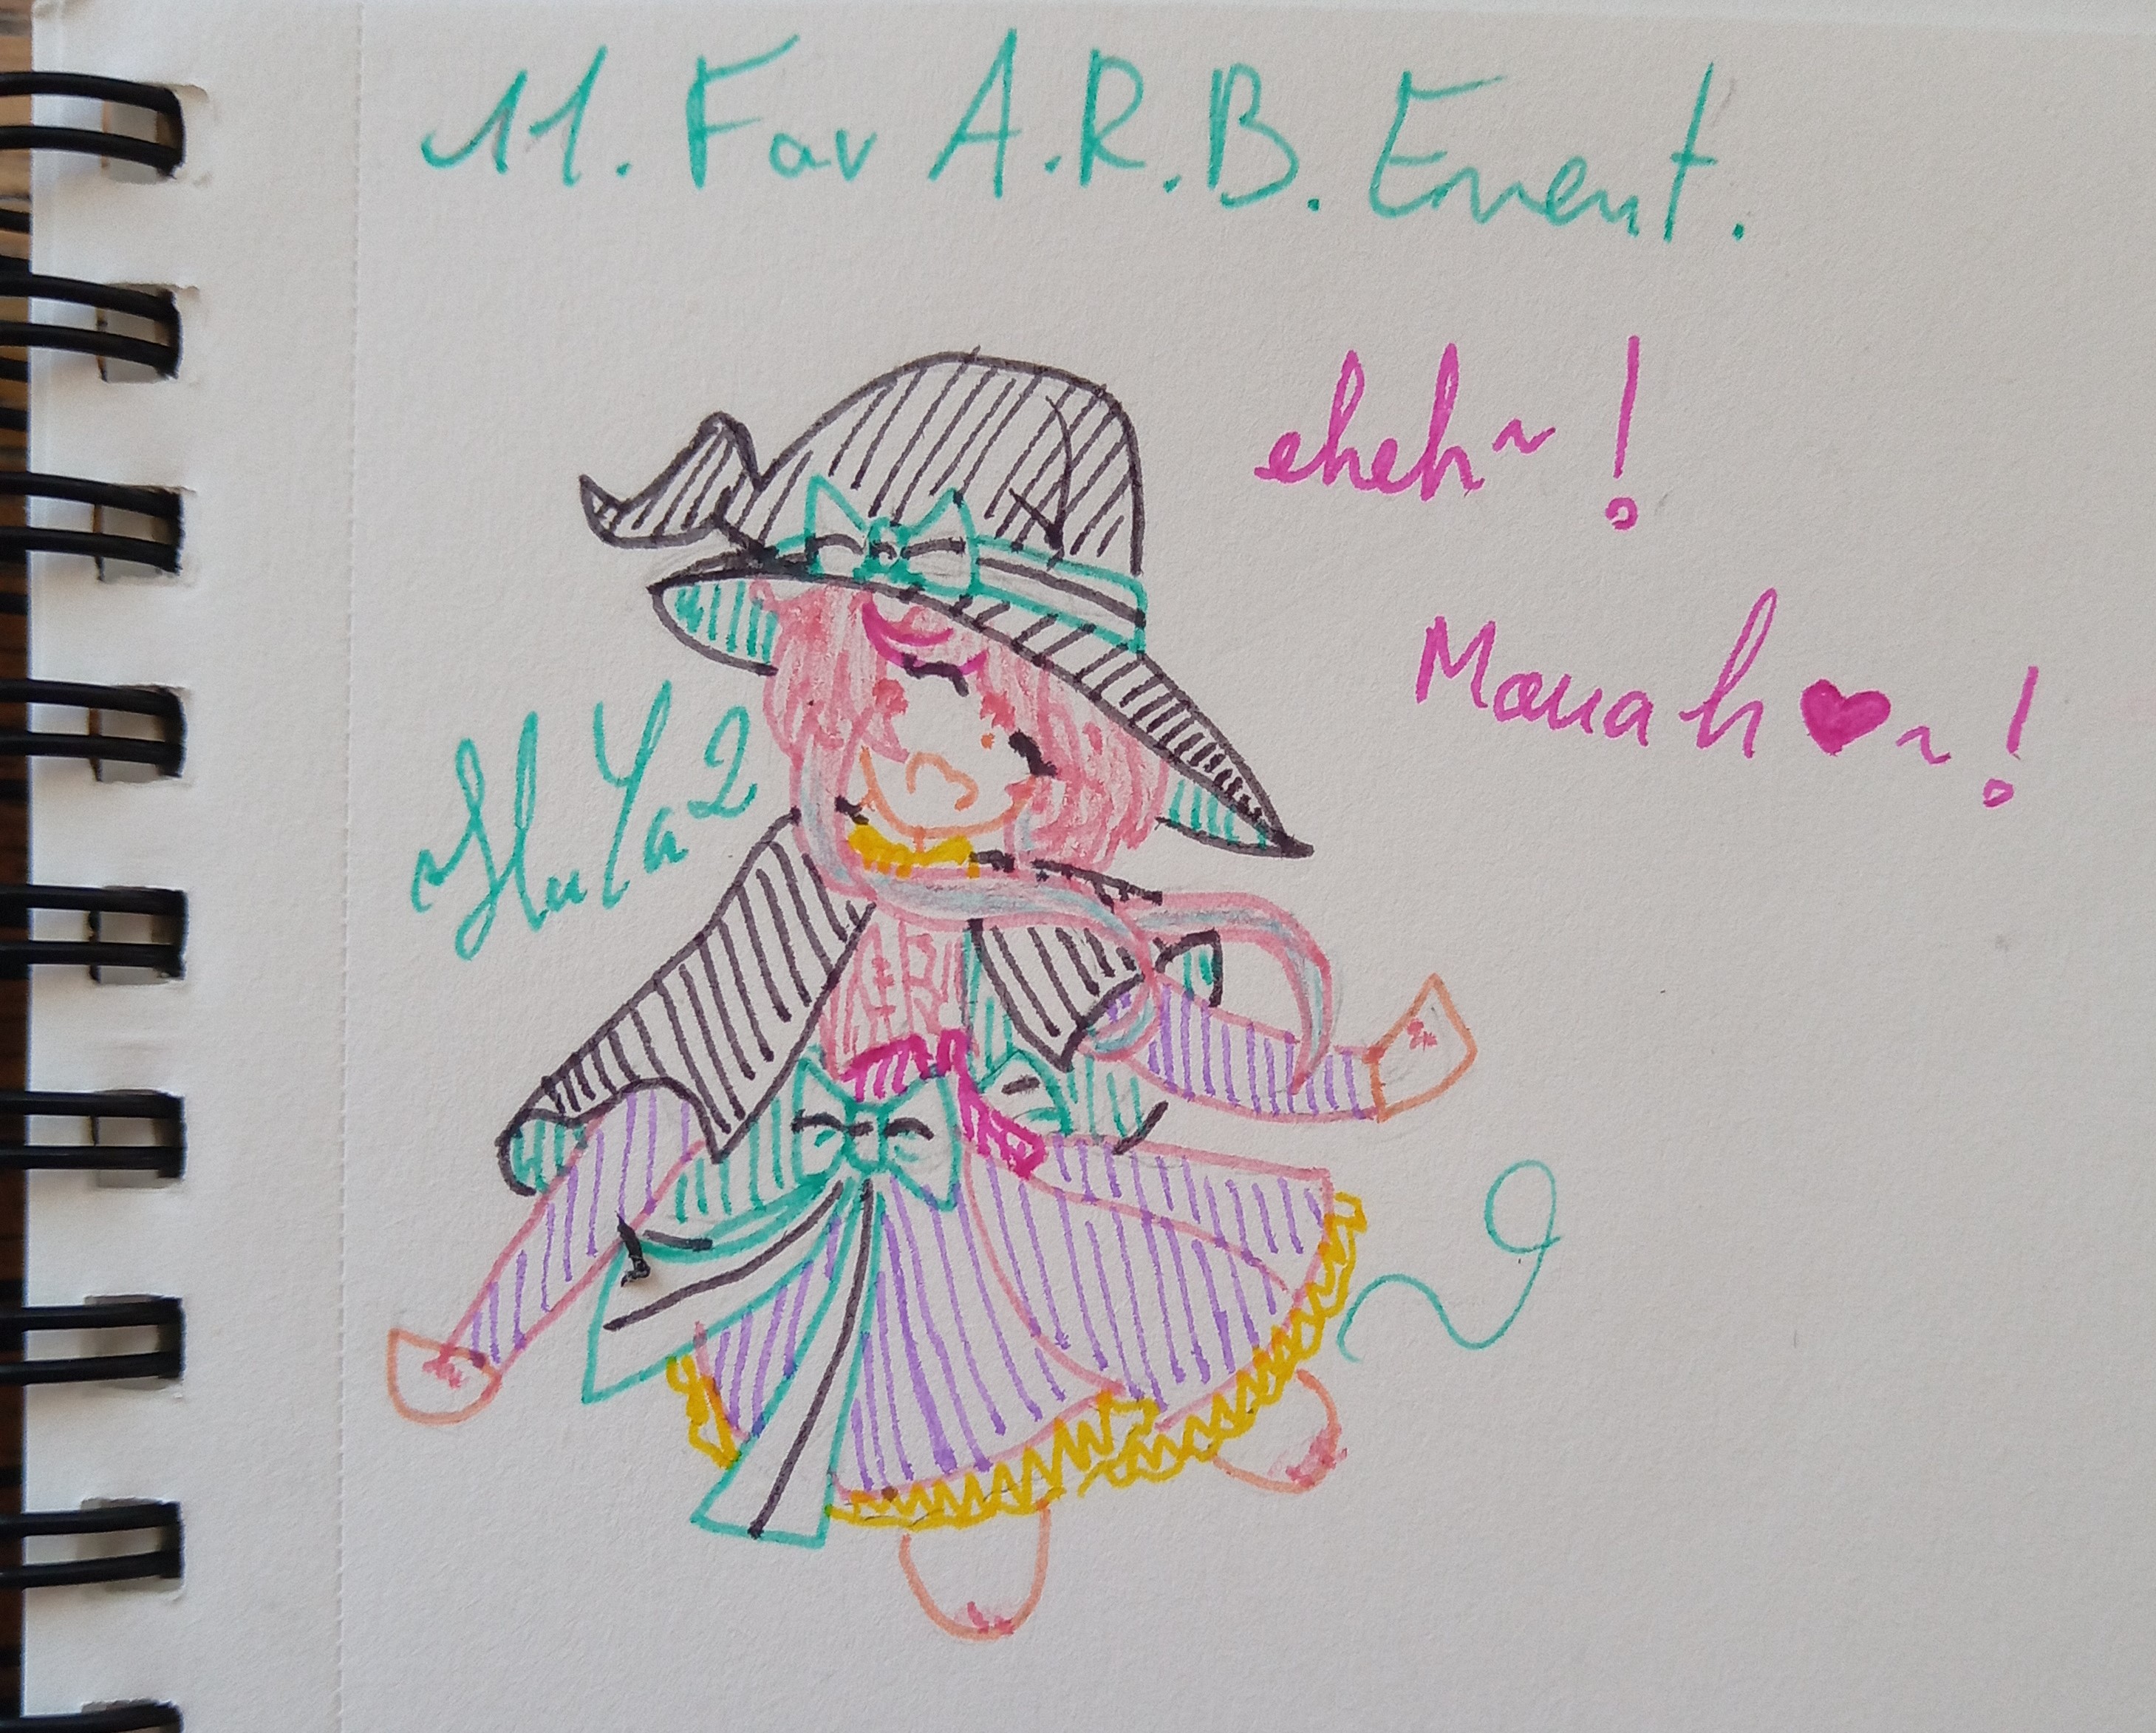 11. Fav A.R.B. Event.
eheh~!
Mouah♥~!
HuYa2